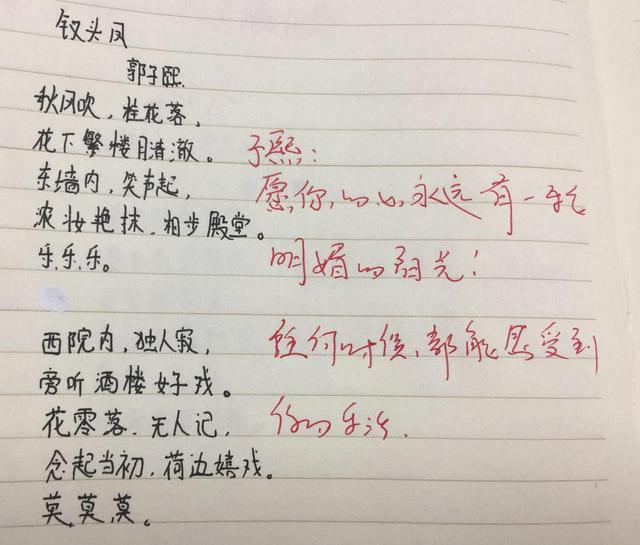 钗头凤
郭子熙
秋风吹，桂花落，
花下繁楼月清澈。
东墙内，笑声起，
浓妆艳抹，相步殿堂。
乐，乐，乐。
西院内，独人寂，
旁听酒楼好戏。
花零落，无人记，
念起当初，荷边嬉戏。
莫，莫，莫。
子熙：
愿你的心永远有一缕
明媚的阳光！
任何时候，都能感受到
你的乐